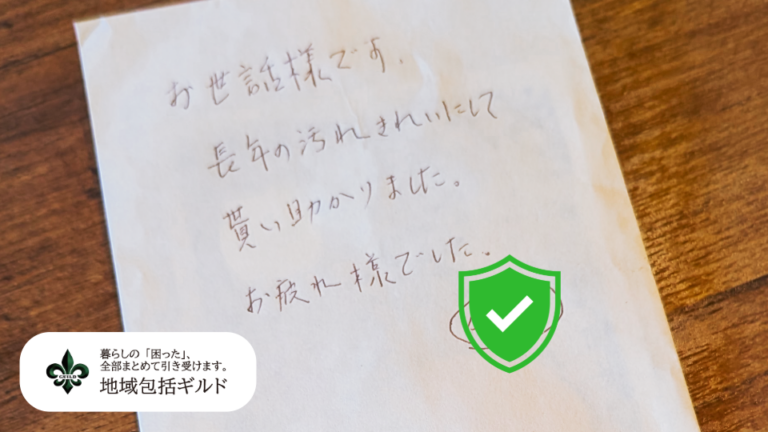 お世話様です.
長年の汚れきれいにして
貰い助かりました。
お疲れ様でした。
GUILD
暮らしの「困った」、
全部まとめて引き受けます。
地域包括ギルド